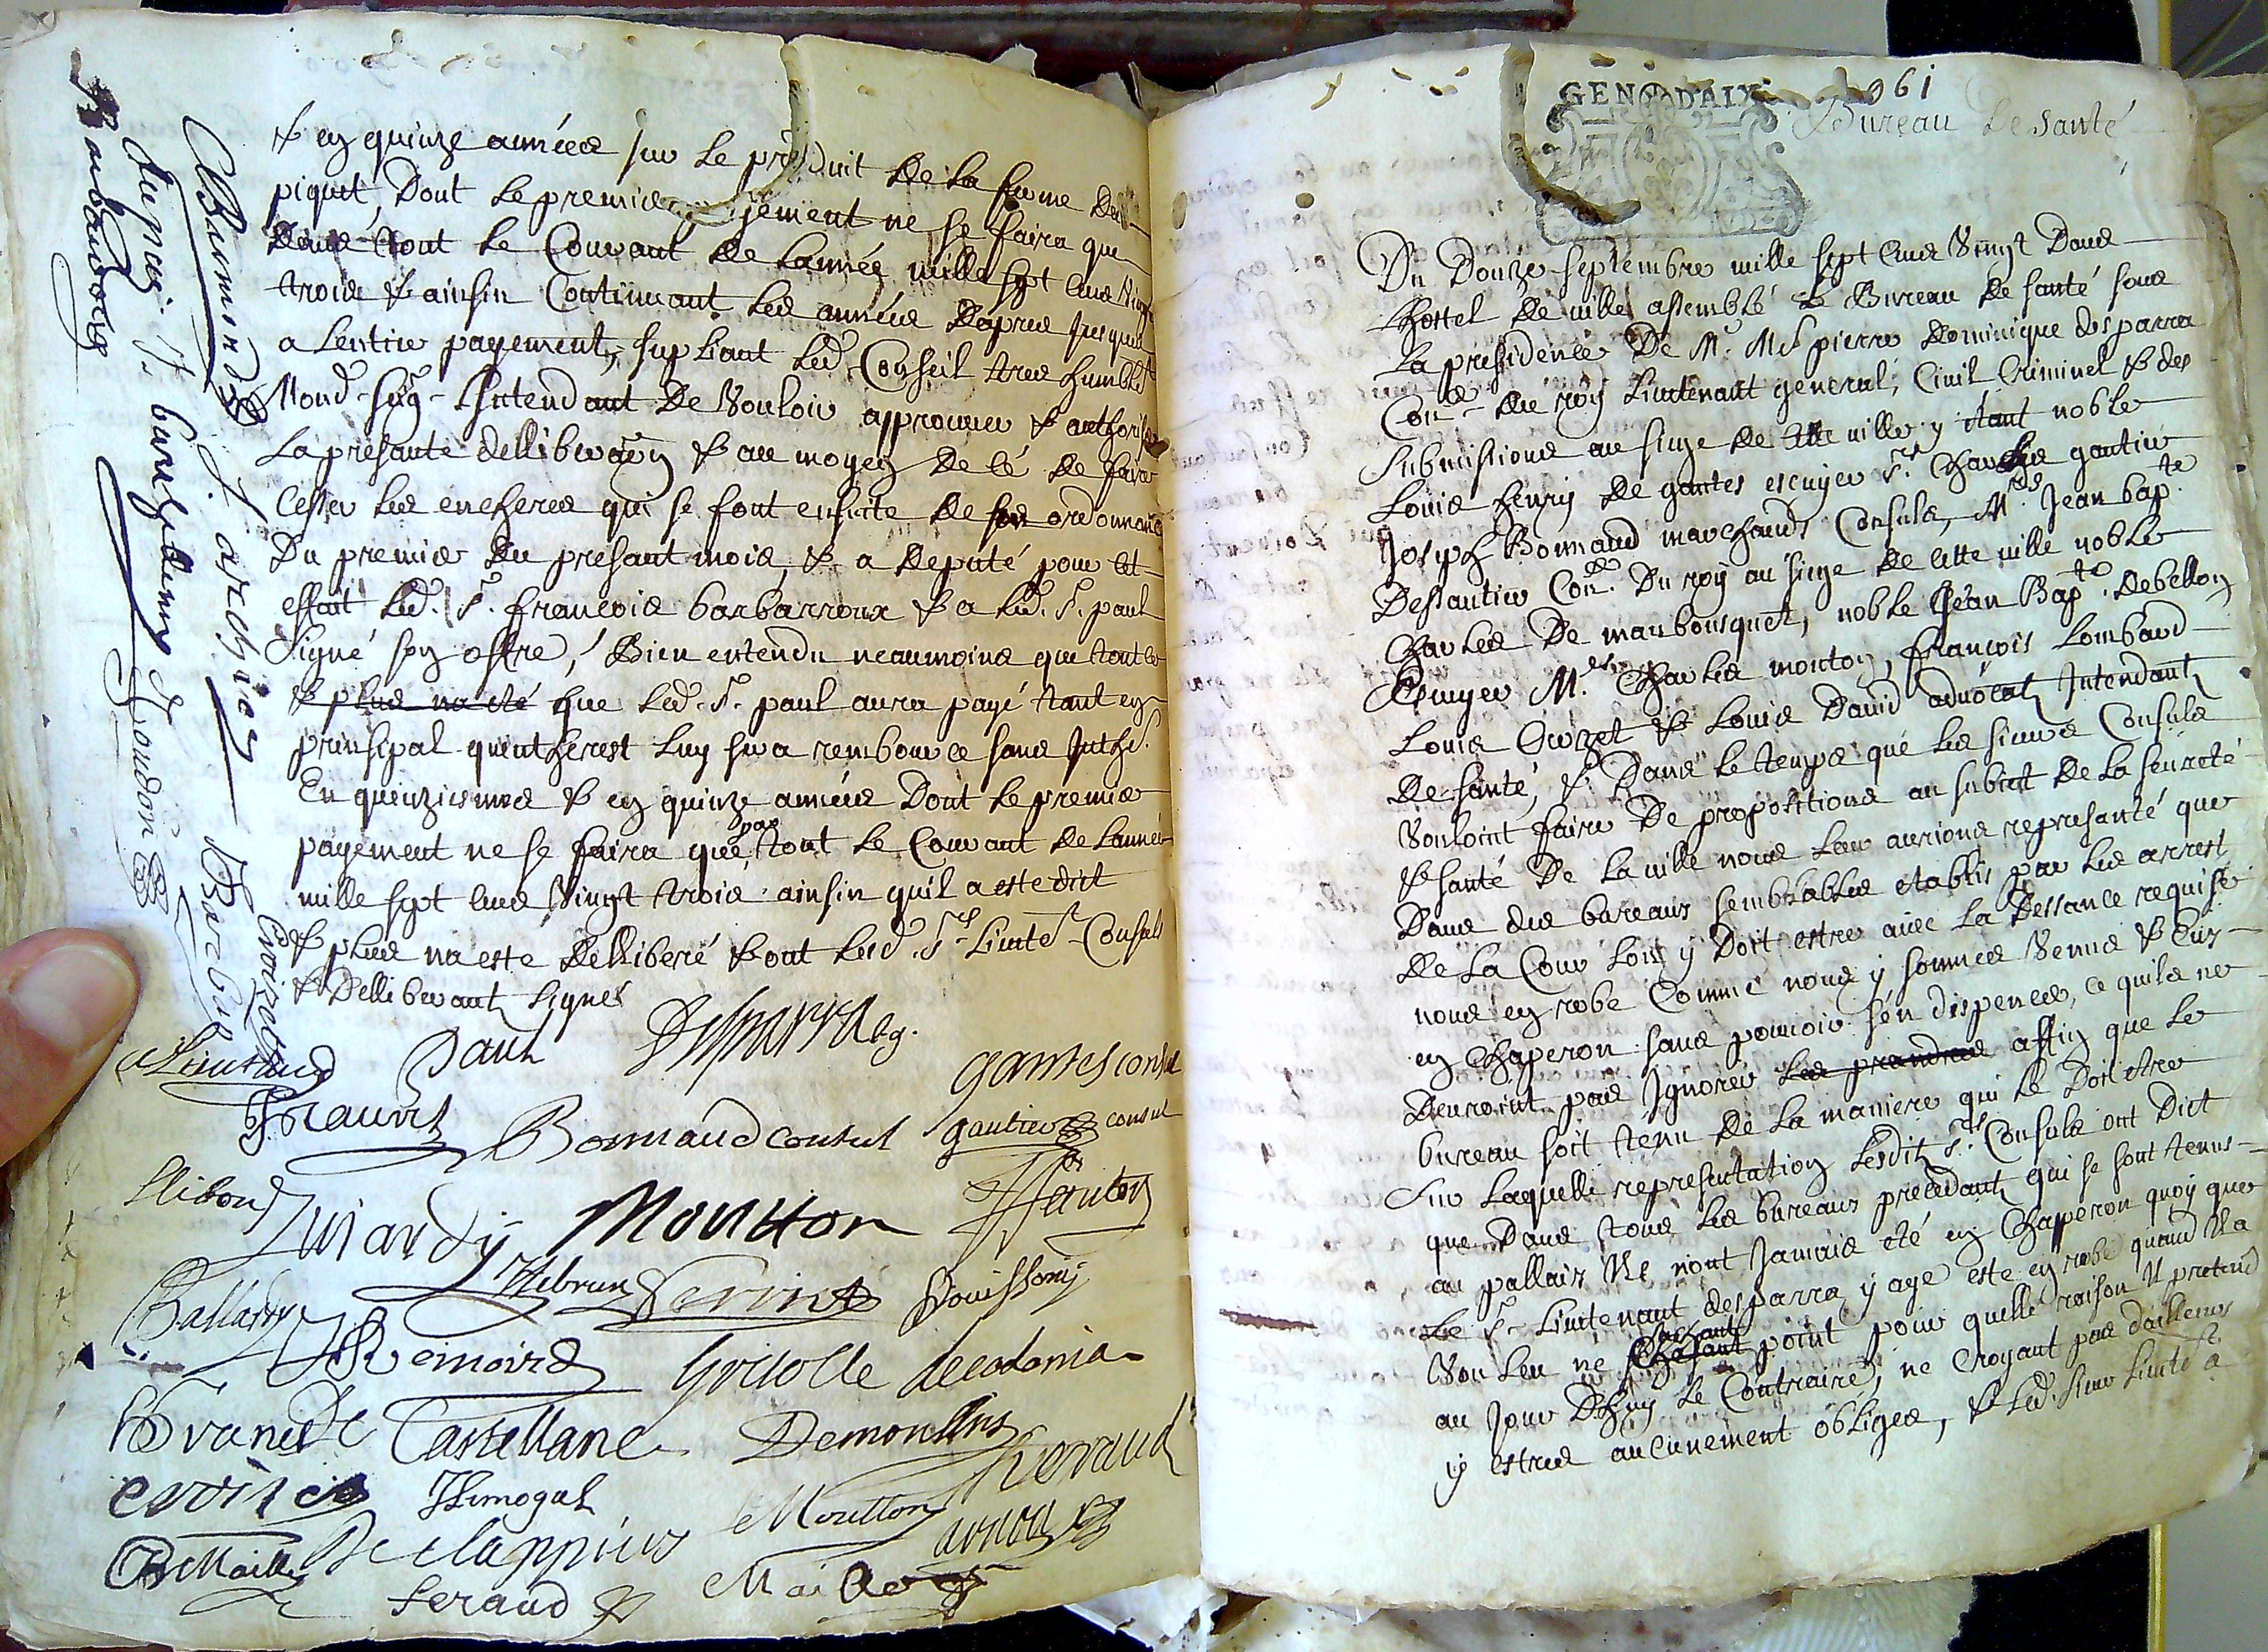 & en quinze années sur le produit de la ferme du
piquet, Dont le premier payement ne se faira que
dans tout le Courant de lannée mille sept cens vingt
trois & ainsin Continuant les années dapres jusques
a lentier payement, supliant led. Conseil tres humblet
Mond. sgr. Intendant de Vouloir approuver & authoriser
la presante delliberaon & au moyen de cé de faire
Cesser les encheres qui se font ensuite de son ordonnance
Du premier du presant mois, & a deputé pour cet
effait led. sr. francois barbarroux & a led. sr. paul
signé son offre, Bien entendu neaumoins que tout ce
& plus na eté que led. sr. paul aura payé tant en
prinsipal quintherest luy sera rembource sans inthe.
En quinziesmes & en quinze années Dont le premier
payement ne se faira que par tout le Courant de lannée
mille sept cens Vingt trois ainsin quil a este dict
& plus na este delliberé & ont lesd. srs Lieutet Consuls
& Delliberants signés
Desparra
Paul
gantes consul
Bonnaud consul
gautier consul
Moutton
Ballardy
Grisolle
Castellane
Demoullins
Limogal
De clappiers
Moutton
feraud
Mailla
Barbaroux
J. archier
Gondon
Croizet
GEN DAIX
061
Bureau de santé
Du Douze septembre mille sept cens Vingt Dans
lhostel de ville assemblé le Bureau de santé sous
la presidence De Mr. Me pierre dominique desparra
Coner du roy Lieutenant general, Civil Criminel & des
submissions au siege de cette ville y étant noble
Louis henry de gantes escuyer srs. Charles gautier
Joseph Bonnaud marchands Consuls, Mres Jean bapte
Dessautier Coner. Du roy au siege de cette ville noble
Charles De maubousquet, noble Jean Bapte. debellon
Escuyer Mes. Charles monton, françois Lombard
Louis Croizet & Louis David advocat Intendants
De santé, & Dans le temps que les sieurs Consuls
Vouloint faire De propositions au subiet de la seureté
& santé De la ville nous leur aurions represanté que
Dans des bureaus semblables etablis par les arrest
de la Cour lon y Doit estre avec la Dessance requise
nous en robe Comme nous y sommes Venus & Eux
en Chaperon sans pouvoir s'en dispencer, ce quils ne
Devroint pas Ignorer les prandres affin que le
bureau soit tenu de la maniere qui le doit etre
sur laquelle represantation lesdits srs. Consuls ont Dict
que Dans tous les bureaus precedants qui se sont tenus
au pallais Ils nont Jamais eté en Chaperon quoy que
Le sr. Lieutenant desparra y aye este en robe quand Il a
Vouleu ne sachant point pour quelle raison Il pretend
au jour Dhuy le Contraire, ne croyant pas dailleurs
y estre aucunement obliges, & led. sieur Lieutet a